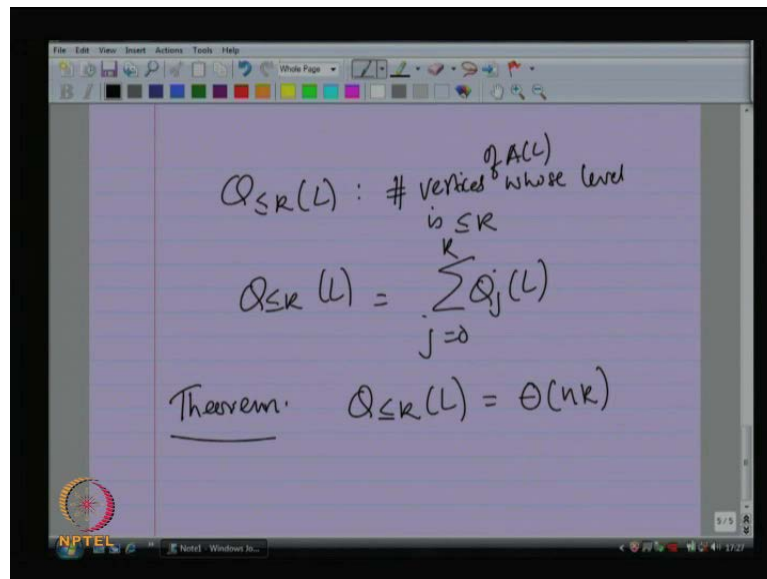 File Edit View Insert Actions Tools Help
Whole Page
B I
Q≤k(L) : # vertices of A(L) whose level
is ≤k
Q≤k (L) = k∑j=0 Qj(L)
Theorem. Q≤k(L) = Θ(nk)
5/5
NPTEL
Note1 - Windows Jo...
17:27